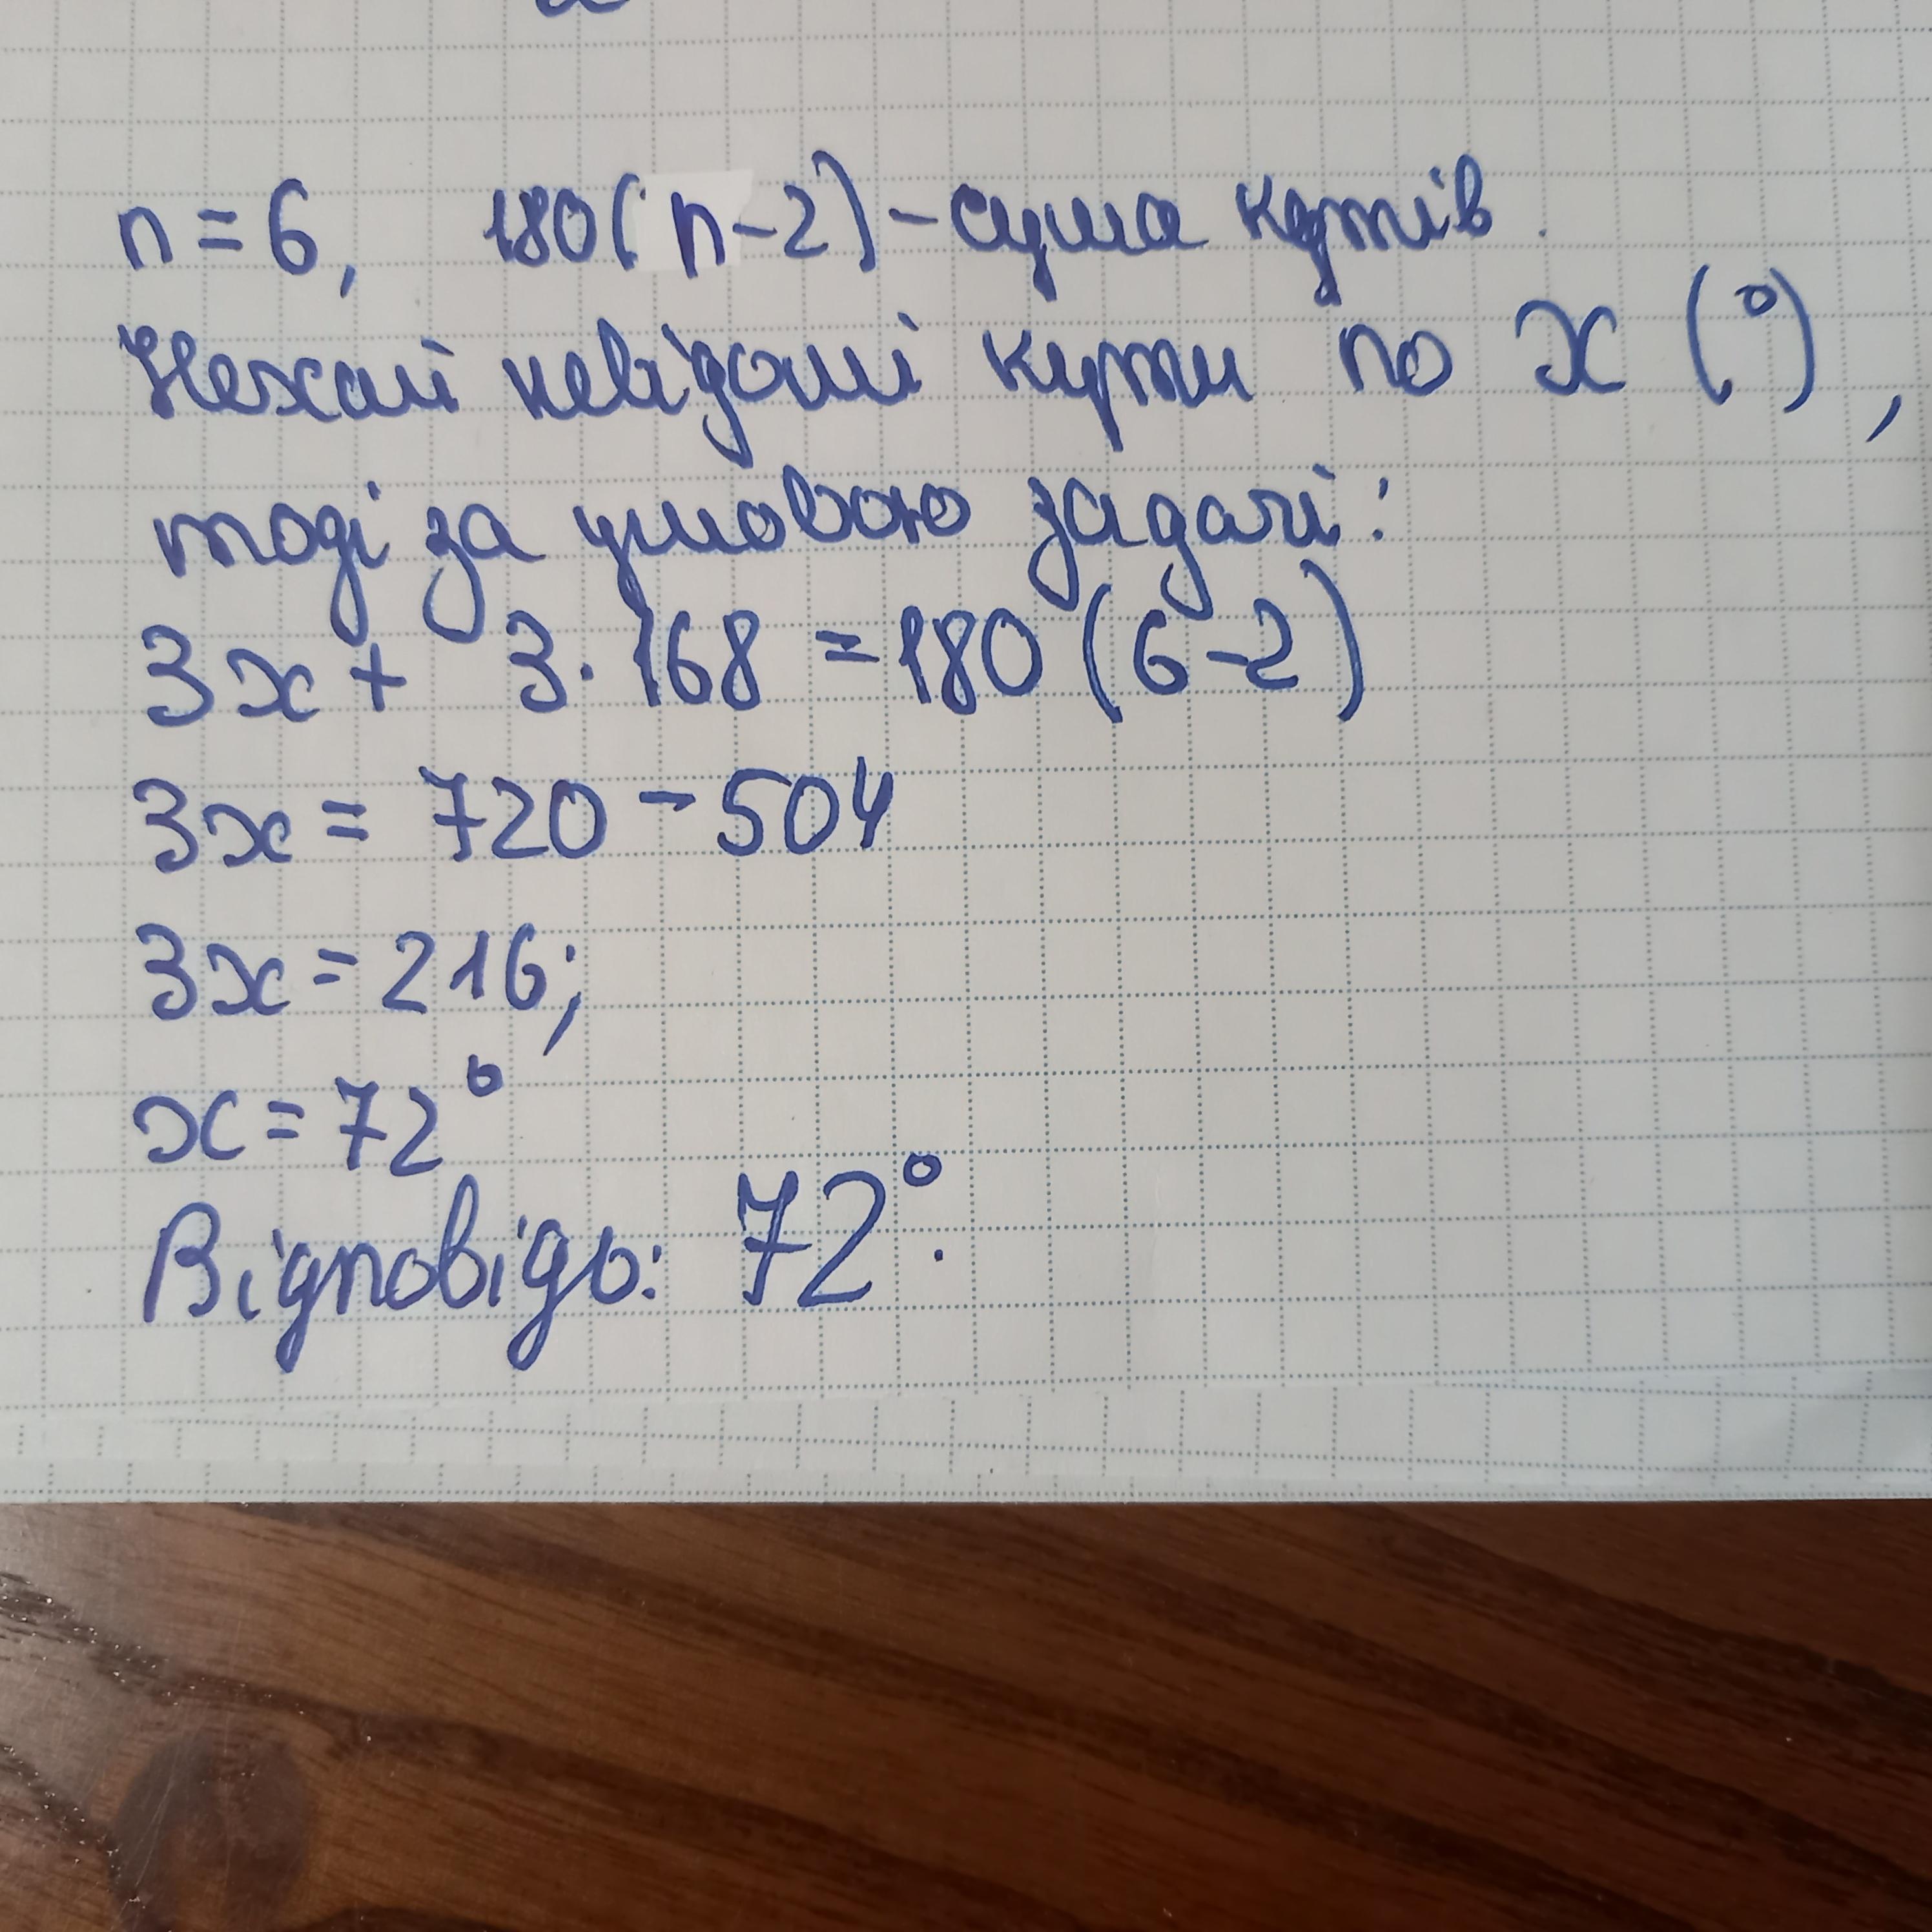 n = 6, 180(n-2) - сума кутів.
Нехай невідомі кути по x (°),
тоді за умовою задачі:
3x + 3·168 = 180(6-2)
3x = 720 - 504
3x = 216;
x = 72°
Відповідь: 72°.